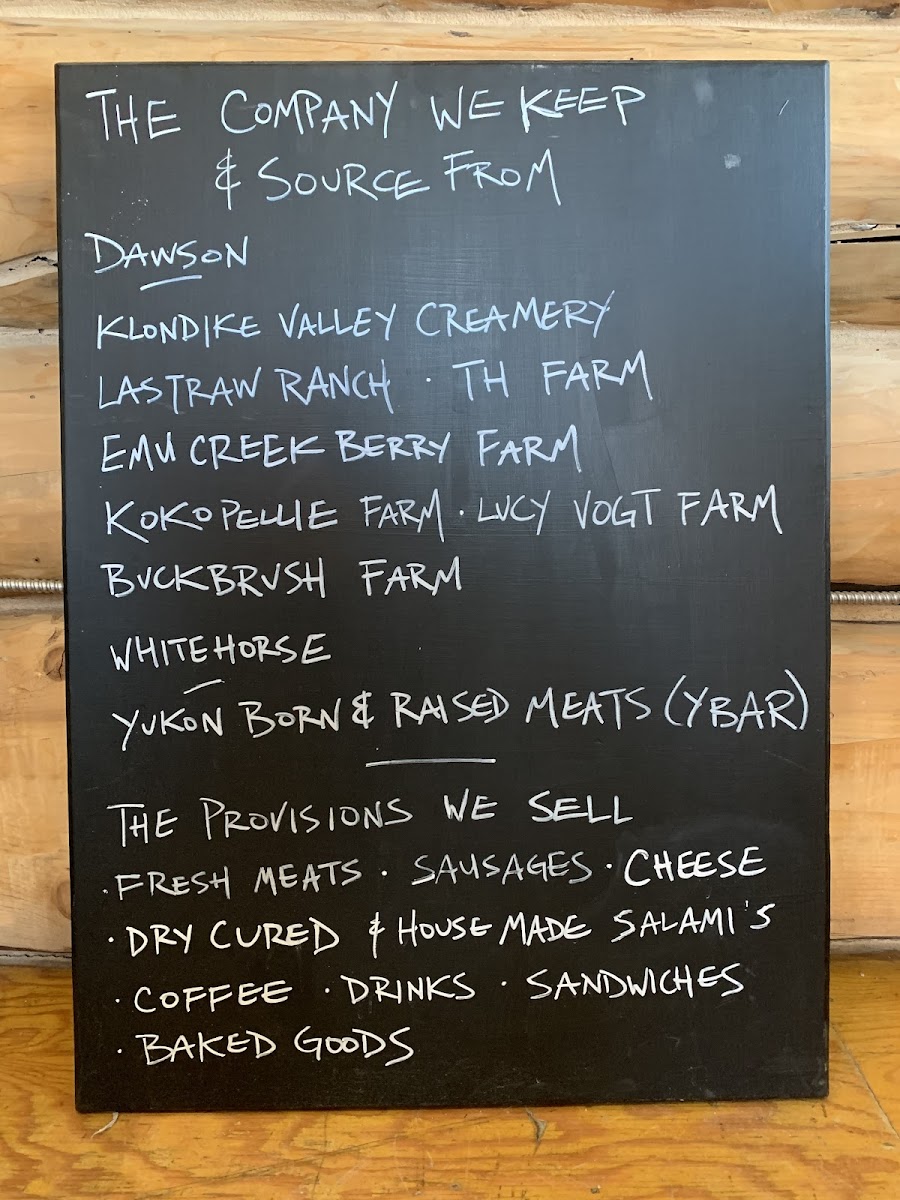 THE COMPANY WE KEEP
& SOURCE FROM
DAWSON
KLONDIKE VALLEY CREAMERY
LASTRAW RANCH · TH FARM
EMU CREEK BERRY FARM
KOKOPELLIE FARM · LUCY VOGT FARM
BUCKBRUSH FARM
WHITEHORSE
YUKON BORN & RAISED MEATS (YBAR)
THE PROVISIONS WE SELL
· FRESH MEATS · SAUSAGES · CHEESE
· DRY CURED & HOUSE MADE SALAMI'S
· COFFEE · DRINKS · SANDWICHES
· BAKED GOODS